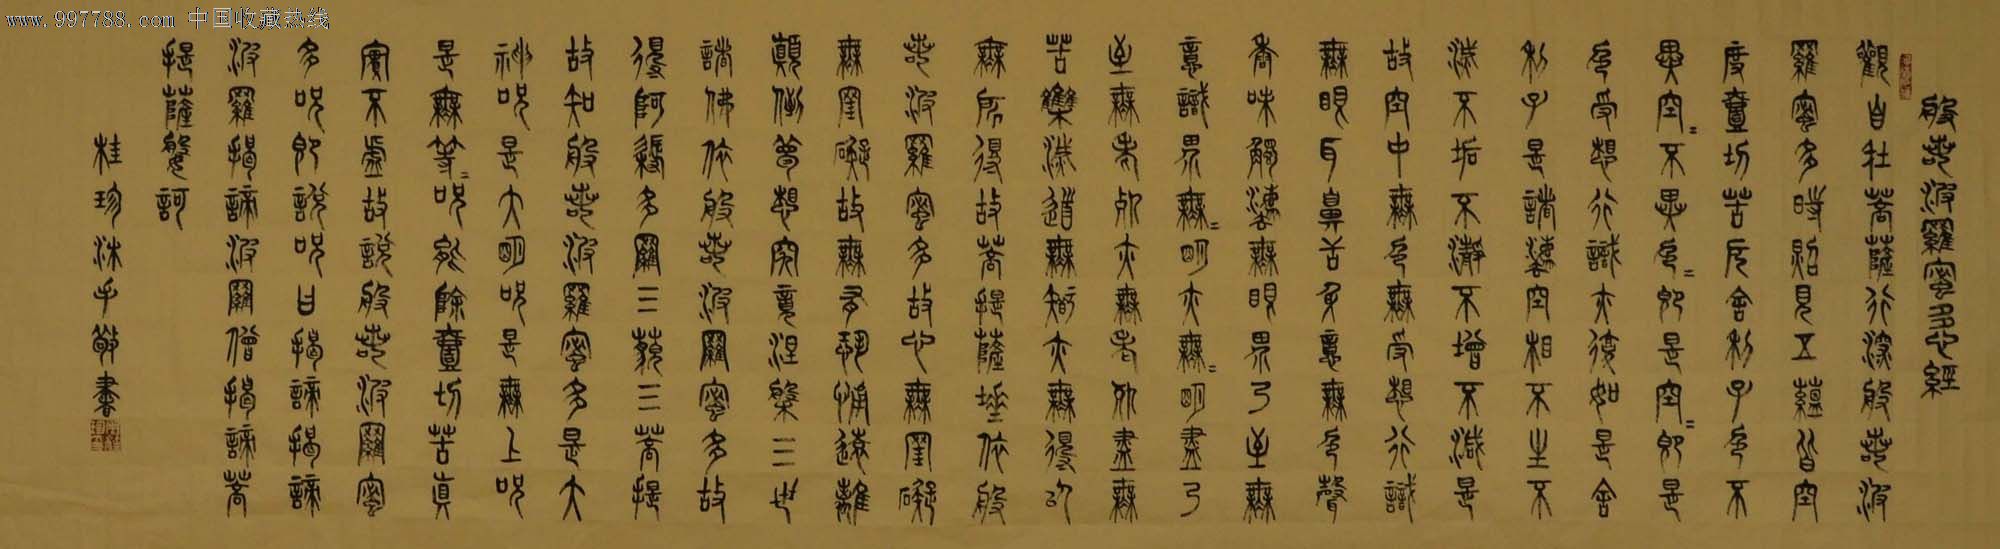 www.997788.com 中国收藏热线
般若波羅蜜多心經
觀自在菩薩行深般若波
羅蜜多時照見五蘊皆空
度壹切苦厄舍利子色不
異空=不異色=即是空=即是
色受想行識亦復如是舍
利子是諸法空相不生不
滅不垢不淨不增不減是
故空中無色無受想行識
無眼耳鼻舌身意無色聲
香味觸法無眼界乃至無
意識界無=明亦無=明盡乃
至無老死亦無老死盡無
苦集滅道無智亦無得以
無所得故菩提薩埵依般
若波羅蜜多故心無罣礙
無罣礙故無有恐怖遠離
顛倒夢想究竟涅槃三世
諸佛依般若波羅蜜多故
得阿耨多羅三藐三菩提
故知般若波羅蜜多是大
神咒是大明咒是無上咒
是無等=咒能除壹切苦真
實不虛故說般若波羅蜜
多咒即說咒曰揭諦揭諦
波羅揭諦波羅僧揭諦菩
提薩婆訶
桂珍沐手敬書